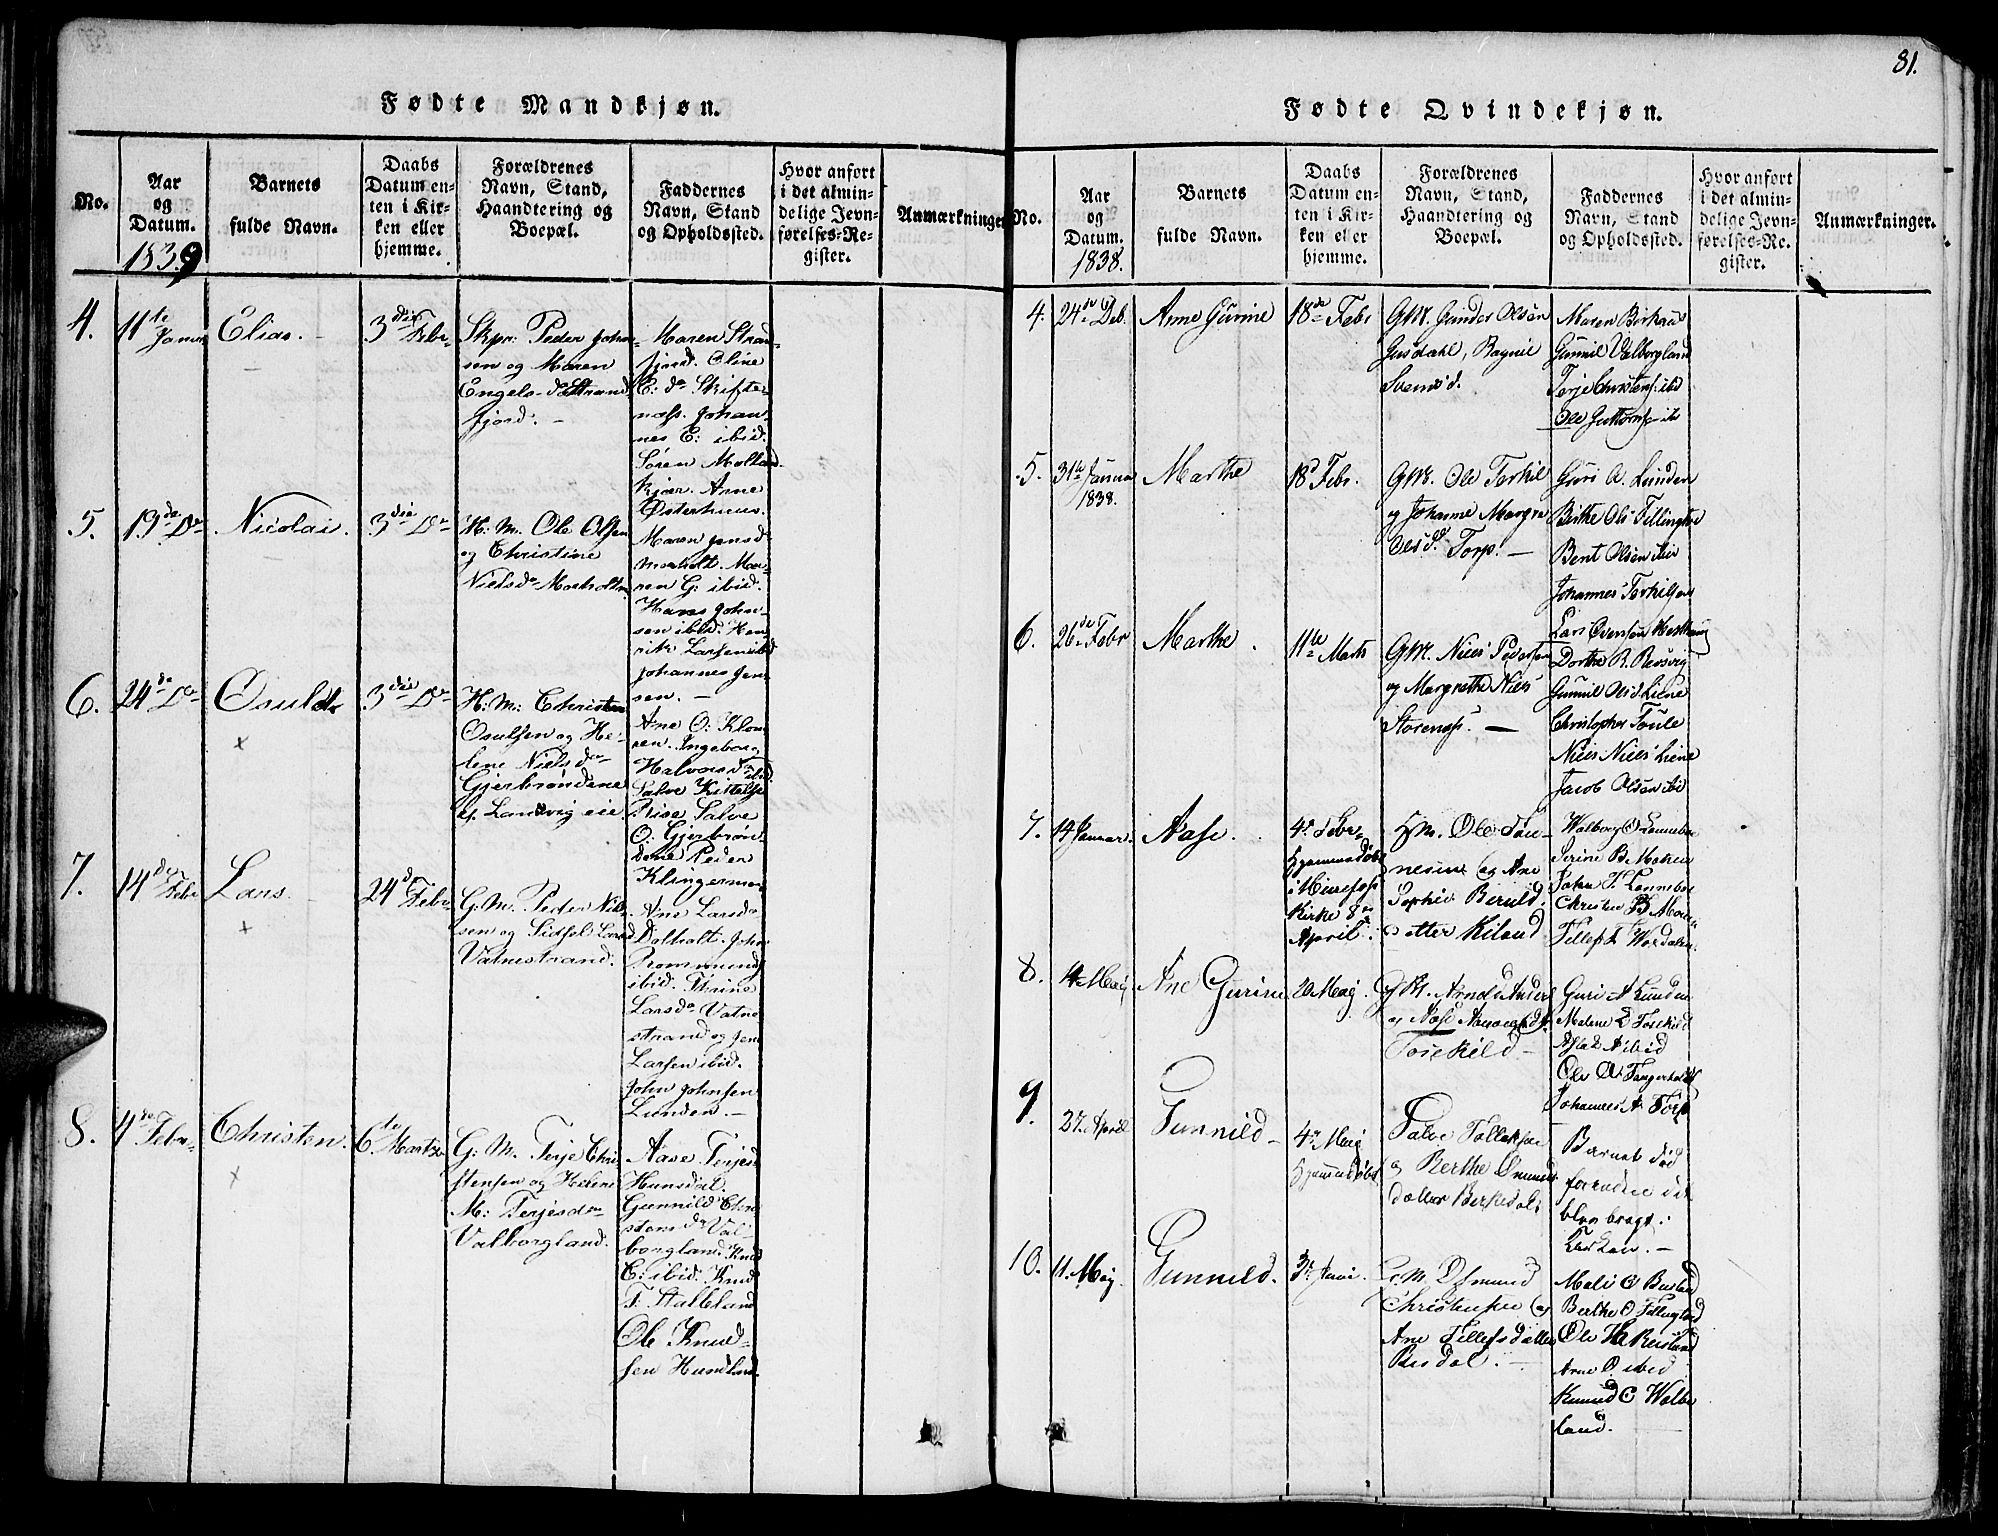 81.
Fødte Mandkjøn.
No.
Aar
og
Datum.
1839
Barnets
fulde Navn.
Daabs
Datum en-
ten i Kir-
ken eller
hjemme.
Forældrenes
Navn, Stand,
Haandtering og
Boepæl.
Faddernes
Navn, Stand
og Opholdssted.
Hvor anført
i det almin-
delige Jevn-
førelses-Re-
gister.
Anmærkninger
4.
11te
Elias.
3die
Febr
Skpr. Peder John-
sen og Maren
Engels-
fjord.
Maren Strand
fjord. Oline
E: da Skifte-
næss. Johan
nes E: ibid.
Søren Molland
Kjær. Arne
Østerhuus.
5.
19de Do
Nicolai.
3die Do
H: M: Ole Olsen
og Christine
Nielsda Morholt
Maren Jensd
Morholt. Ma-
ren G: ibid.
Hans John-
sen ibid. Hen
rik Larsen ibid
Johannes Jen
sen.
6.
24de Do
Osuld
x
3die Do
H: M: Christen
Osulsen og He-
lene Nielsda
Gjerbrøndene
Landvig eie
Ane O: Klom
ren. Ingebor
Halvorsd ibid
Salve Kittelse
Rise Salve
O. Gjerbrøn-
dene Peder
Klingermo
7.
14de Febr
Lars.
x
24d Febr
G: M. Peder Niel
sen og Sidsel Larsd
Vatnestrand.
Ane Larsda
Dalholt. John
Trommund
ibid. Thrine
Larsda Vatne
strand og Jen
Larsen ibid.
John Johnsen
Lunden.
8.
4de Febr
Christen.
x
6te Marts
G: M. Terje Chri
stensen og Helene
M: Terjesda
Valborgland.
Aase Terjesd
Hunsdal.
Gunnild Chri
stensda Val-
borgland. Knud
C: ibid. Knud
T: Stalleland
Ole Knud-
sen Hundland.
Fødte Qvindekjøn.
No.
Aar
og
Datum.
1838.
Barnets
fulde Navn.
Daabs
Datum en-
ten i Kir-
ken eller
hjemme.
Forældrenes
Navn, Stand,
Haandtering og
Boepæl.
Faddernes
Navn, Stand
og Opholdssted.
Hvor anført
i det almin-
delige Jevn-
førelses-Re-
gister.
Anmærkninger.
4.
24de Deb.
Anne Gurine
18de Febr
GM. Gunder Olsen
Gusdahl, Ragnil
Svensd.
Maren Birkaas
Gunnil Valborgland
Terje Christens. ibid
Ole Guttorms ib
5.
31te Janua
1838.
Marthe
18d Febr.
GM. Ole Terkil
og Johanne Margre
Olsd. Torp.
Guri A. Lunden
Birthe Ols Fillingtve
Bent Olsen ibi
Johannes Terkilsen
Lars Evensen
6.
26de Febr
Marthe.
11te Mats
GM. Niels Pedersen
og Margrethe Niels
Storenæss.
Dorthe R. Revsvig
Gunnil Olsd Liene
Christopher Toule
Niels Niels Liene
Jacob Olsen ibi
7.
14 Januar.
Aase.
4d Febr
Hjemmedøbt
i
Kirke 8de
April.
HM. Ole Tøn-
nesen og Ane
Sophie Beruld
datter Kiland
Walborg O Lonneboe
Serine B Moheia
John T. Lonneboe
Christen B Mo
Tellef T Wordalen
8.
4 Maj
Ane Gurine
20 Maj.
GM. Arne Anders
og Aase
Toreskild
Guri A Lunden
Malene D Toreskild
Aslak A ibid
Ole A. Fangerholdt
Johannes A. Torp
9.
27. April
Gunnild
4de Maj
Hjemmedøbt
Salve Tollefsen
og Berthe Omund
datter Berkedal.
Barnet død
forinden det
blev bragt i
Kirken.
10.
11. Maj.
Gunnild.
3de Juni
G. M. Osmund
Christensen og
Ane Tellefsdatter
Risdal.
Mali O Buslan
Berthe O Fillingtvd
Ole H Reisland
Arne O ibid
Knud C Walbo
land.